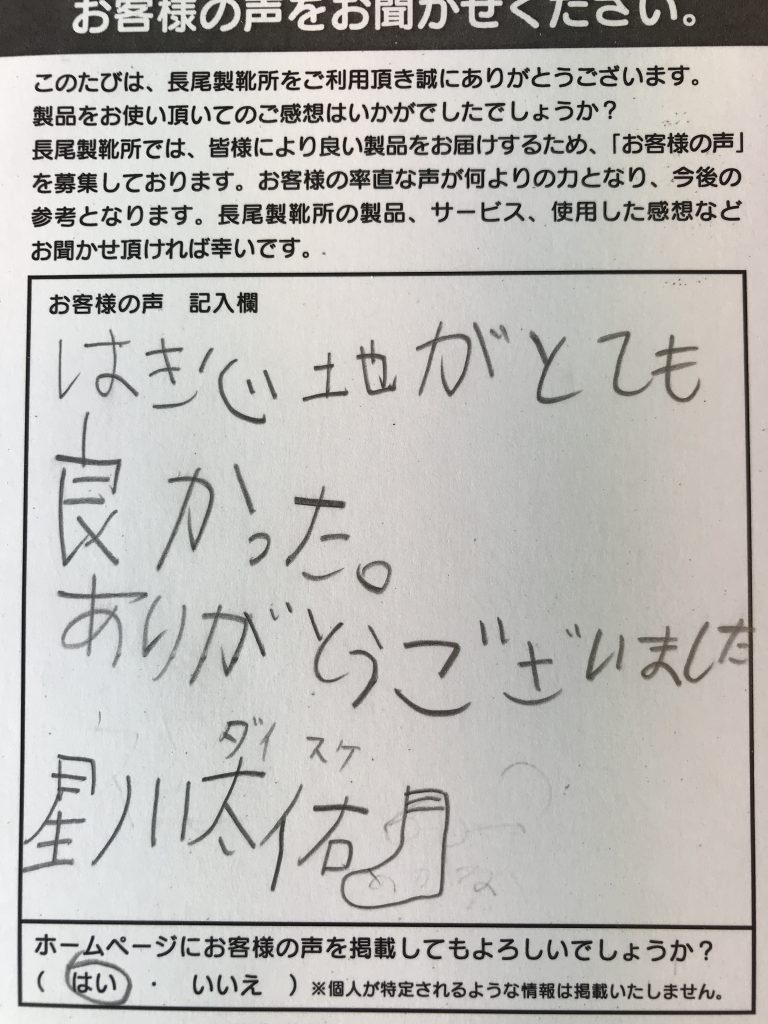 お客様の声をお聞かせください。
このたびは、長尾製靴所をご利用頂き誠にありがとうございます。
製品をお使い頂いてのご感想はいかがでしたでしょうか？
長尾製靴所では、皆様により良い製品をお届けするため、「お客様の声」
を募集しております。お客様の率直な声が何よりの力となり、今後の
参考となります。長尾製靴所の製品、サービス、使用した感想など
お聞かせ頂ければ幸いです。
お客様の声　記入欄
はき心地がとても
良かった。
ありがとうございました
ダイスケ
星川太佑
ホームページにお客様の声を掲載してもよろしいでしょうか？
（ はい ・ いいえ ）※個人が特定されるような情報は掲載いたしません。